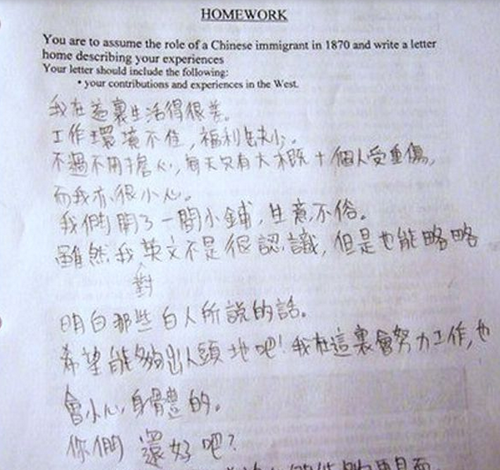 HOMEWORK
You are to assume the role of a Chinese immigrant in 1870 and write a letter
home describing your experiences
Your letter should include the following:
• your contributions and experiences in the West.
我在這裏生活得很差。
工作環境不佳，福利缺少。
不過不用擔心，每天只有大概十個人受重傷，
而我亦很小心。
我們開了一間小鋪，生意不俗。
雖然我英文不是很認識，但是也能略略
對
明白那些白人所說的話。
希望能夠出人頭地吧！我在這裏會努力工作，也
會小心身體的。
你們還好吧？